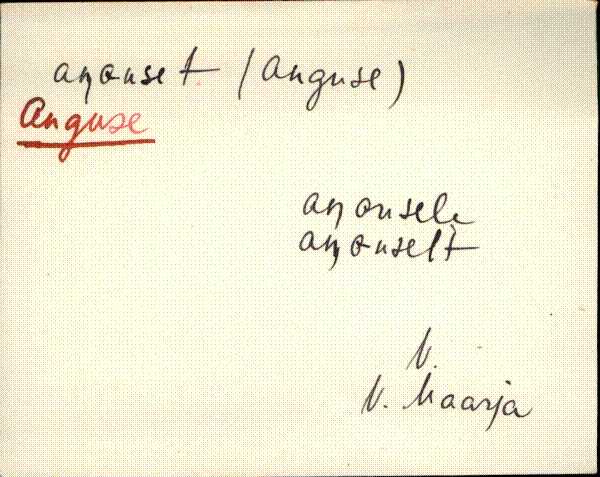 aŋonset (Anguse)
Anguse
aŋonsele
aŋonselt
V.
V. Maarja